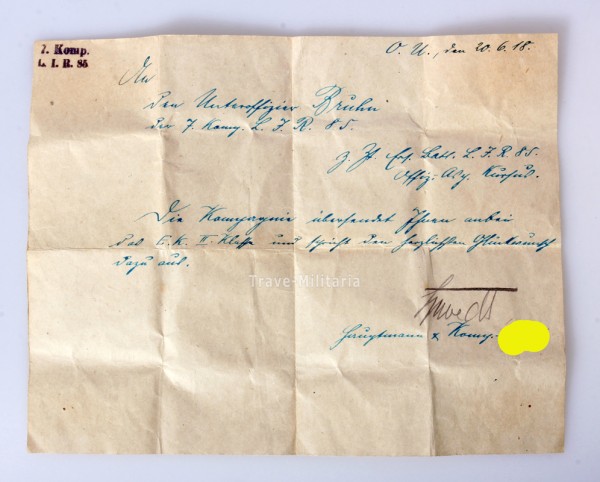 7. Komp.
L. I. R. 85
O. U., den 20.6.18.
An
den Unteroffizier Bruhn
der 7. Komp. L. I. R. 85.
z. Zt. Ers. Batl. L. I. R. 85.
Offiz. Asp. Kursus.
Die Kompagnie übersendet Ihnen anbei
das E. K. II. Klasse und spricht den herzlichsten Glückwunsch
dazu aus.
Trave-Militaria
Hauptmann & Komp.